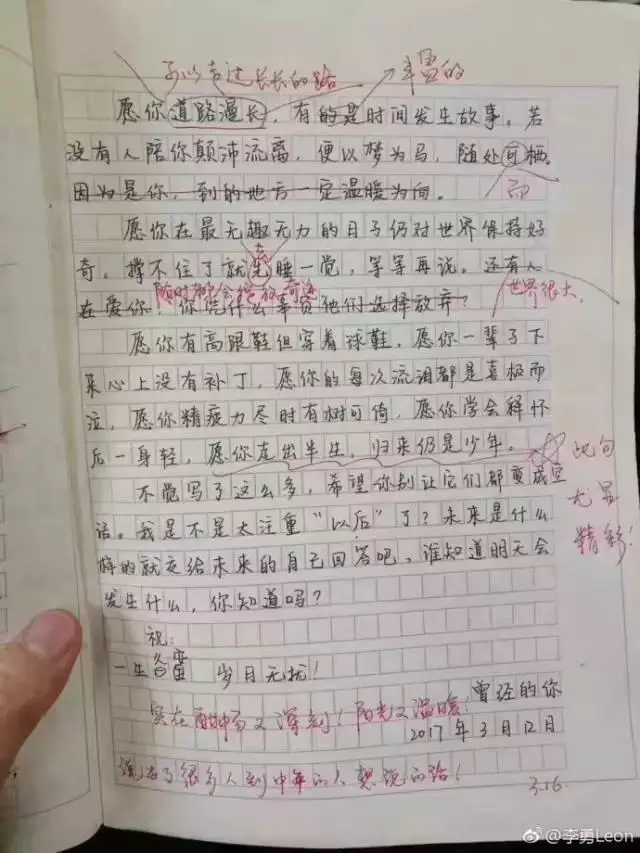 可以走过长长的路
丰富的
愿你道路漫长，有的是时间发生故事。若
没有人陪你颠沛流离，便以梦为马，随处可栖。
因为是你，到的地方一定温暖为向。
而
愿你在最无趣无力的日子仍对世界保持好
奇，撑不住了就先睡一觉，等等再说。还有人
去
随时都会绽放奇迹
世界很大，
在爱你！你凭什么辜负他们选择放弃？
愿你有高跟鞋但穿着球鞋，愿你一辈子下
来心上没有补丁，愿你的每次流泪都是喜极而
泣，愿你精疲力尽时有树可倚，愿你学会释怀
后一身轻，愿你走出半生，归来仍是少年。
此句
尤其
精彩！
不觉写了这么多，希望你别让它们都变成空
话。我是不是太注重“以后”了？未来是什么
样的就交给未来的自己回答吧，谁知道明天会
发生什么，你知道吗？
祝：
一生 岁月无扰！
曾经的你
实在酣畅又深刻！阳光又温暖！
2017年3月12日
说出了很多人到中年的人想说的话！
3.16
@李勇Leon